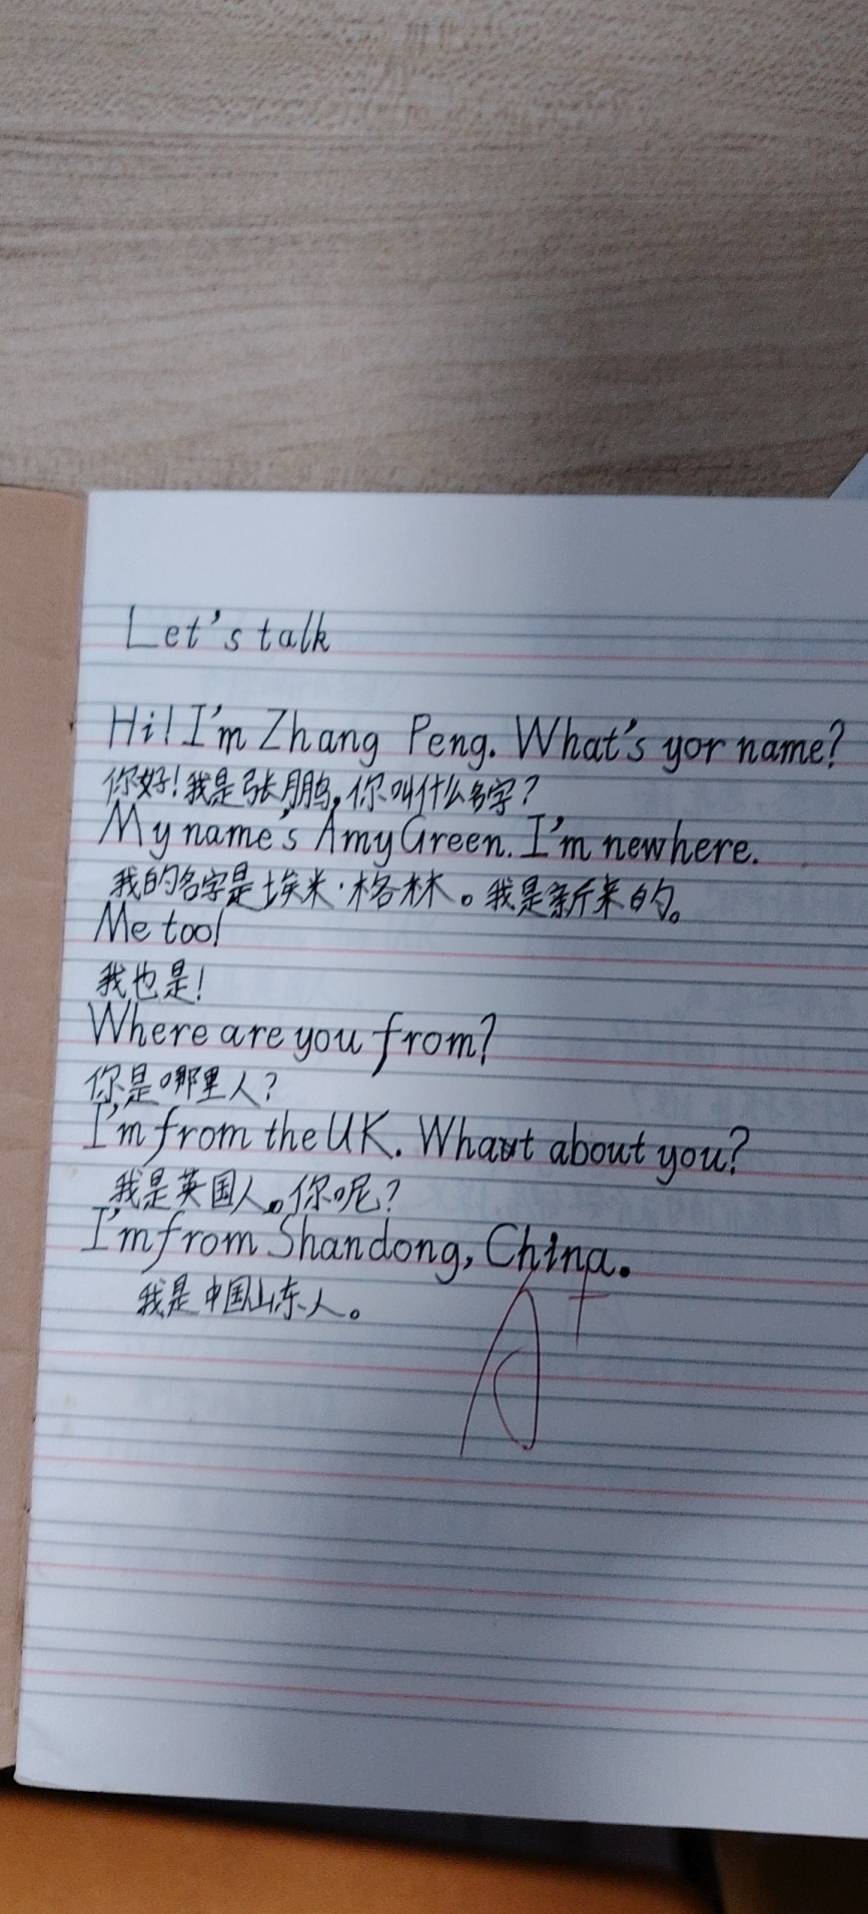 Let's talk
Hi! I'm Zhang Peng. What's yor name?
你好!我是张鹏,你叫什么名字?
My name's Amy Green. I'm new here.
我的名字是埃米·格林。我是新来的。
Me too!
我也是!
Where are you from?
你是哪里人?
I'm from the UK. What about you?
我是英国人。你呢?
I'm from Shandong, China.
我是中国山东人。
A+